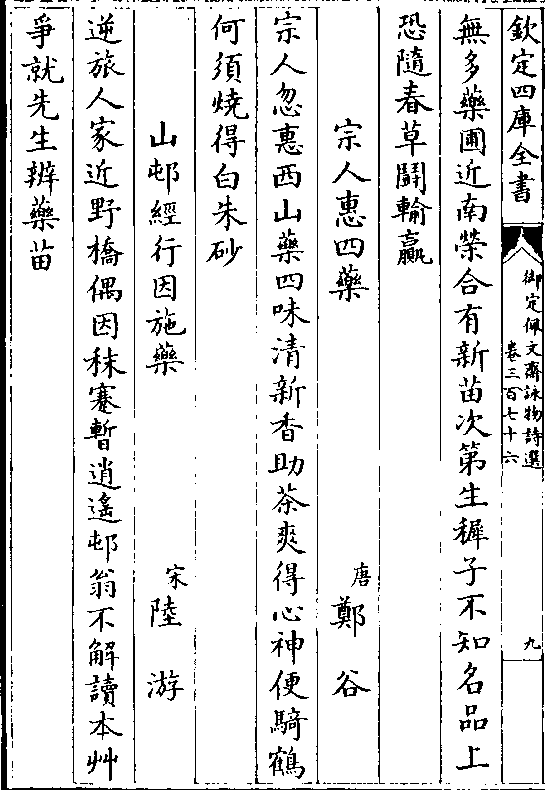 欽定四庫全書
御定佩文齋詠物詩選
卷三百七十六
九
無多藥圃近南榮合有新苗次第生穉子不知名品上
恐隨春草鬬輸贏
宗人惠四藥
唐鄭谷
宗人忽惠西山藥四味清新香助茶爽得心神便騎鶴
何須燒得白朱砂
山邨經行因施藥
宋陸游
逆旅人家近野橋偶因秣蹇暫逍遙邨翁不解讀本艸
爭就先生辨藥苗